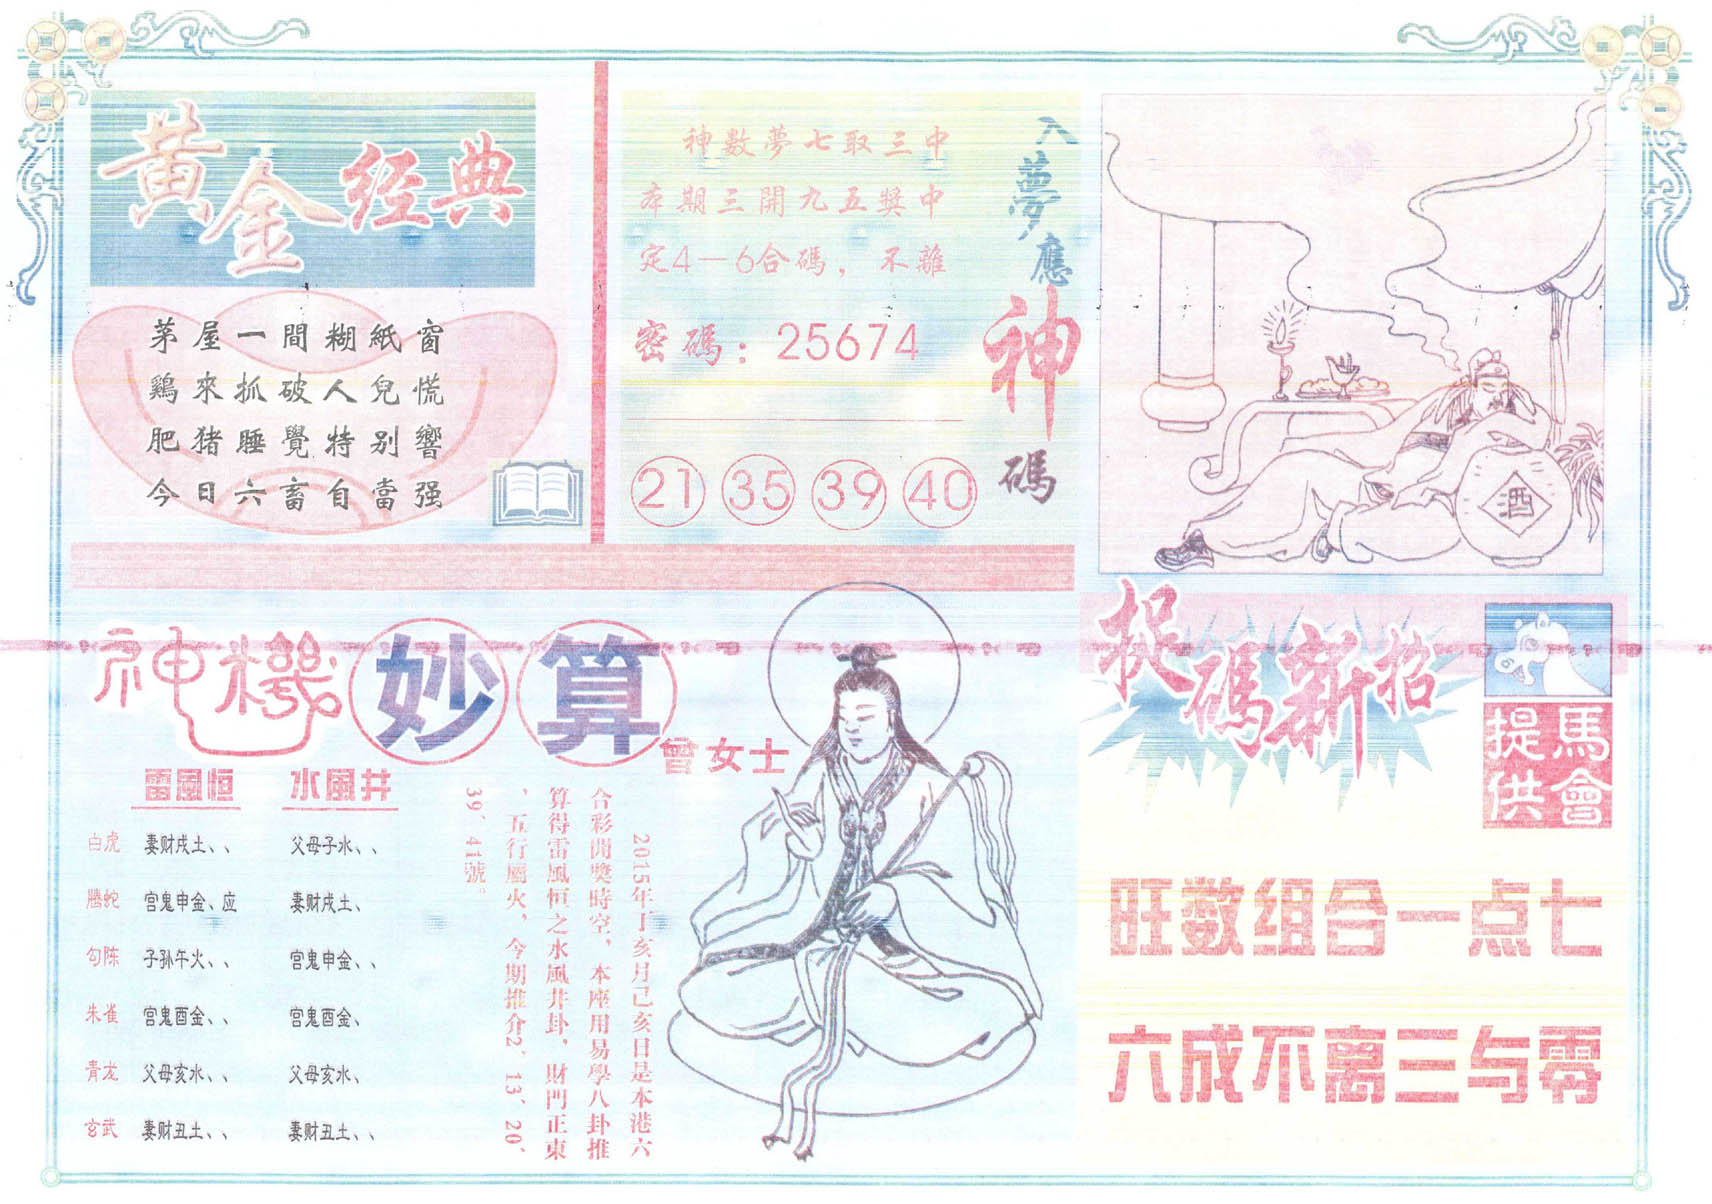 黃金经典
茅屋一間糊紙窗
鷄來抓破人兒慌
肥猪睡覺特别響
今日六畜自當强
神數夢七取三中
本期三開九五獎中
定4－6合碼，不離
密碼：25674
21 35 39 40
入夢應神碼
酒
神機妙算
曾女士
雷風恒 水風井
白虎 妻财戌土、、 父母子水、、
騰蛇 宫鬼申金、应 妻财戌土、
勾陈 子孙午火、、 宫鬼申金、、
朱雀 宫鬼酉金、、 宫鬼酉金、
青龙 父母亥水、、 父母亥水、
玄武 妻财丑土、、 妻财丑土、、
2015年丁亥月己亥日是本港六
合彩開獎時空，本座用易學八卦推
算得雷風恒之水風井卦，財門正東
、五行屬火，今期推介2、13、20、
39、41號。
捉碼新招
馬會提供
旺数组合一点七
六成不离三与零